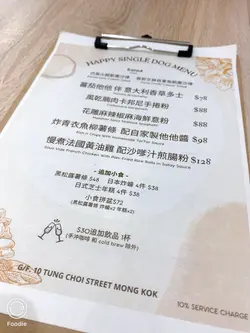 HAPPY SINGLE DOG MENU
蕃茄他他 伴 意大利香草多士 $78
風乾鴨肉卡邦尼手捲粉 $88
花雕麻辣椒麻海鮮意粉 $88
炸青衣魚柳薯條 配自家製他他醬 $98
慢煮法國黃油雞 配沙嗲汁煎腸粉 $128
- 追加小食 -
黑松露薯條 $48 日本炸蠔 4件 $38
日式芝士年糕 4件 $38
小食拼盆$72
(黑松露薯條 炸蠔x2 年糕x2)
$30追加飲品 1杯
(手沖咖啡 和 cold brew 除外)
G/F, 10 TUNG CHOI STREET MONG KOK
10% SERVICE CHARGE
Foodie